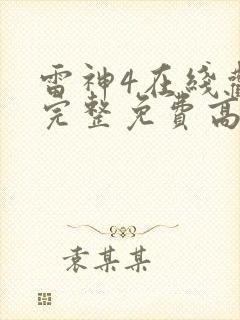 雷神4在线
完整免费高
袁某某